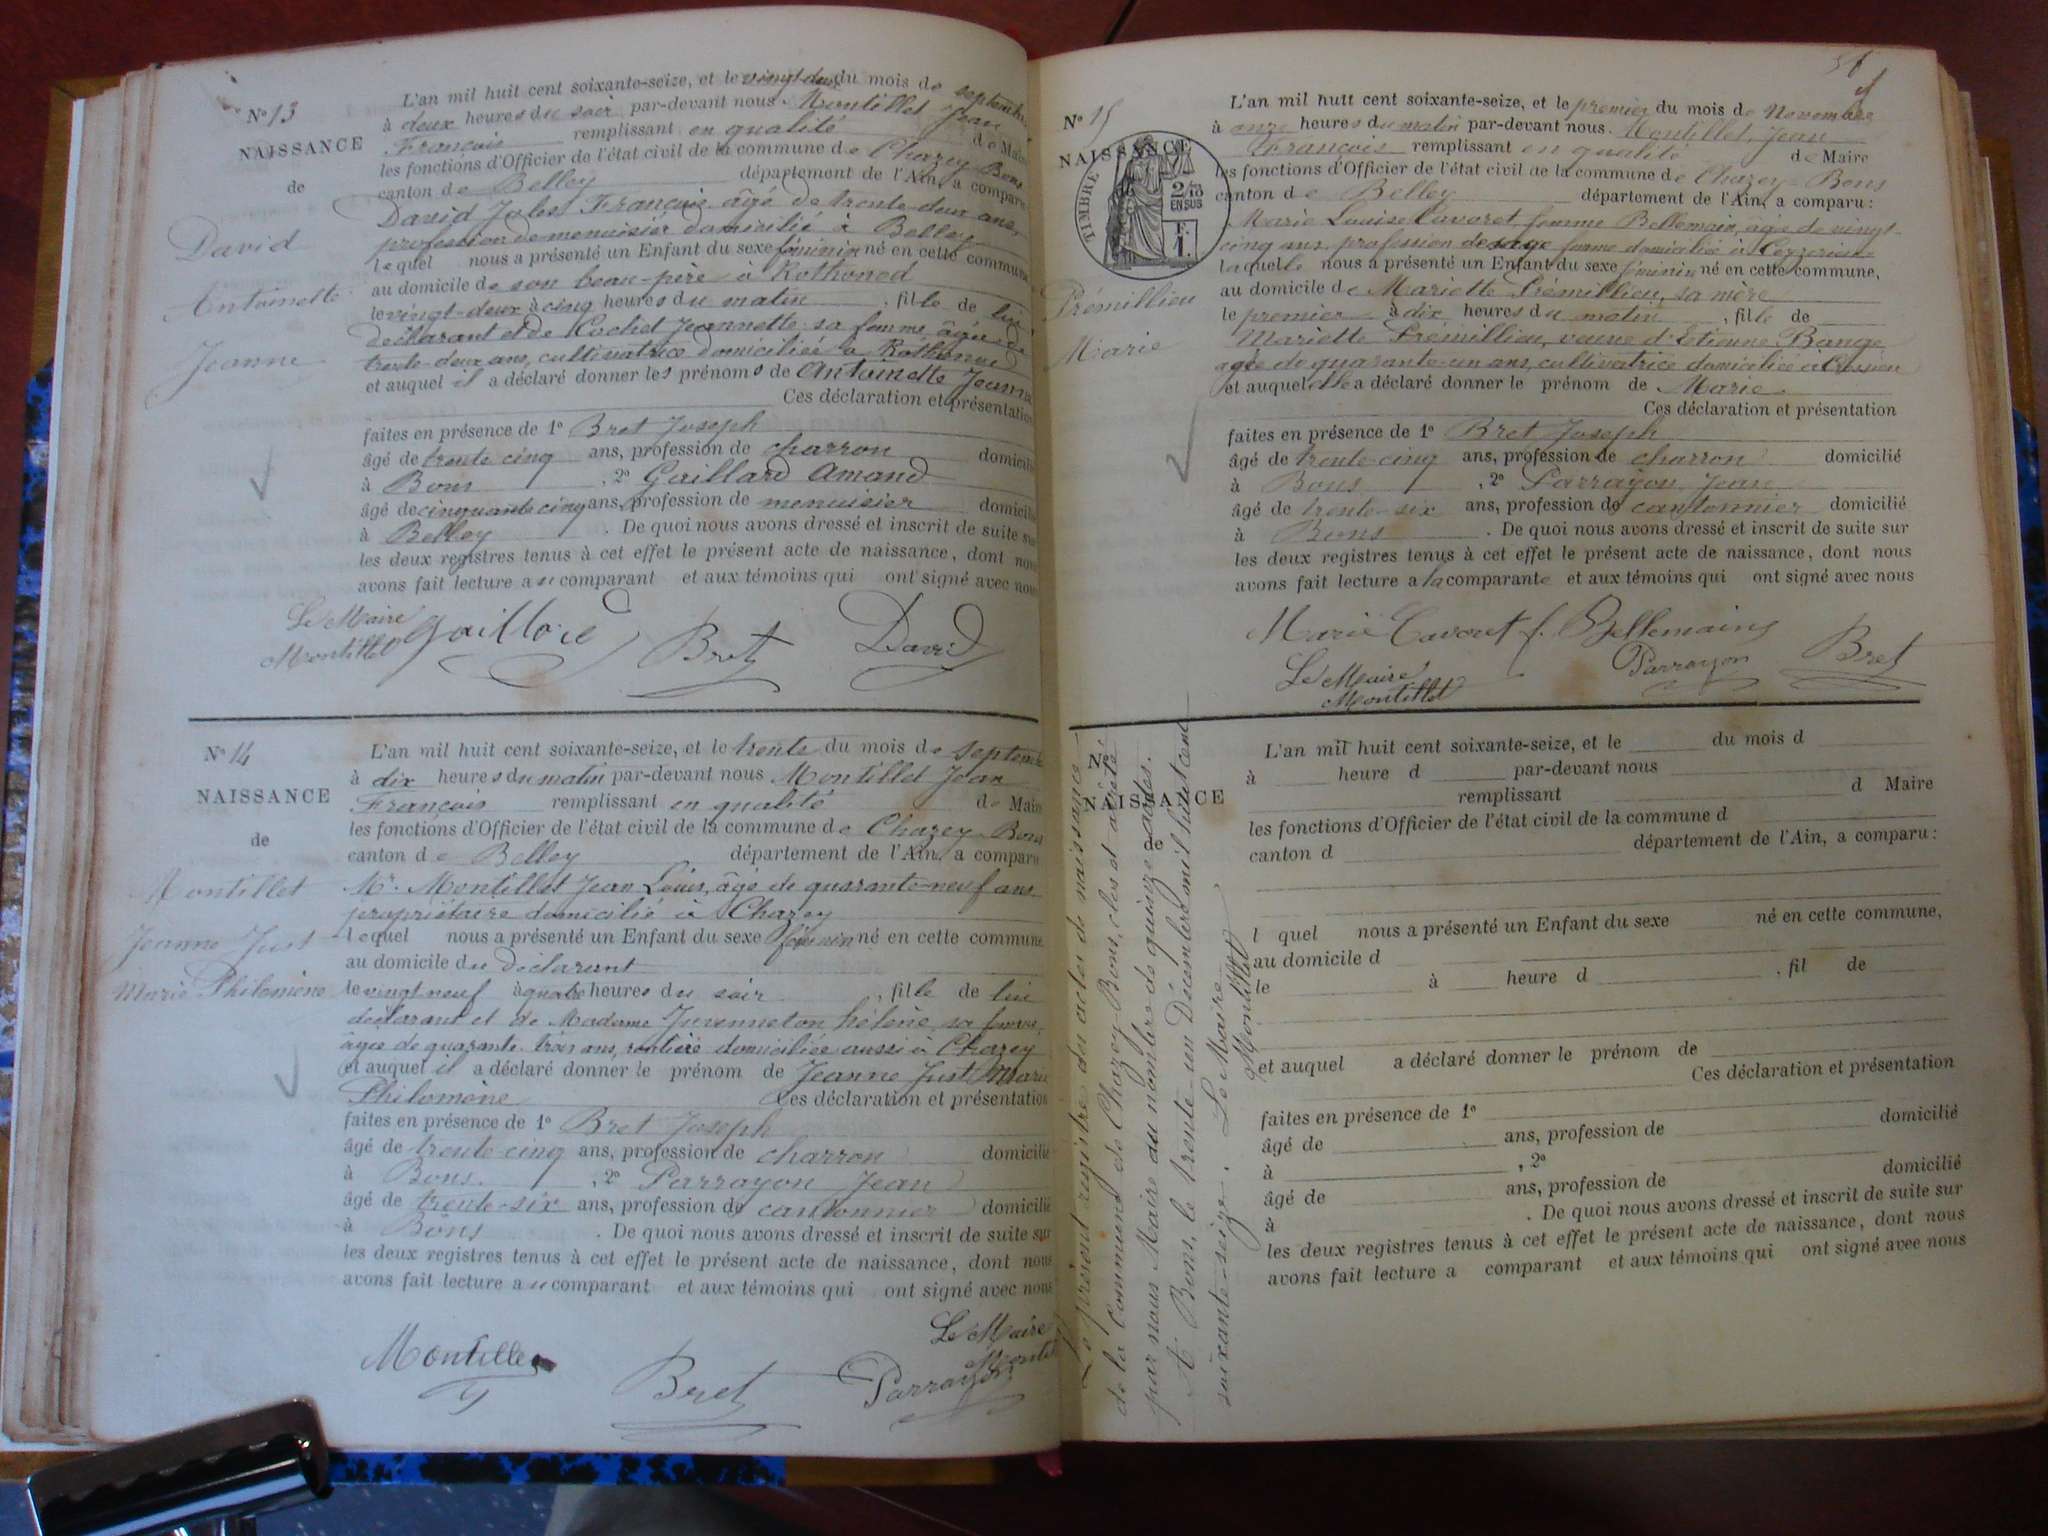 N° 13
NAISSANCE
de
David
Antoinette
Jeanne
L'an mil huit cent soixante-seize, et le vingt-deux du mois de septembre
à deux heures du soir par-devant nous Montillet Jean
François remplissant en qualité de Maire
les fonctions d'Officier de l'état civil de la commune de Chazey-Bons
canton de Belley département de l'Ain, a comparu
David Jules François âgé de trente-deux ans,
profession de menuisier domicilié à Belley
lequel nous a présenté un Enfant du sexe féminin né en cette commune
au domicile de son beau-père à Rothonod
le vingt-deux à cinq heures du matin, fille de lui
déclarant et de Cochet Jeannette sa femme âgée de
trente-deux ans, cultivatrice domiciliée à Rothonod
et auquel il a déclaré donner les prénoms de Antoinette Jeanne
Ces déclaration et présentation
faites en présence de 1° Bret Joseph
âgé de trente cinq ans, profession de charron domicilié
à Bons, 2° Gaillard Amand
âgé de cinquante cinq ans, profession de menuisier domicilié
à Belley. De quoi nous avons dressé et inscrit de suite sur
les deux registres tenus à cet effet le présent acte de naissance, dont nous
avons fait lecture au comparant et aux témoins qui ont signé avec nous
Le Maire
Montillet Gaillard Bret David
N° 14
NAISSANCE
de
Montillet
Jeanne Just
Marie Philomène
L'an mil huit cent soixante-seize, et le trente du mois de septembre
à dix heures du matin par-devant nous Montillet Jean
François remplissant en qualité de Maire
les fonctions d'Officier de l'état civil de la commune de Chazey-Bons
canton de Belley département de l'Ain, a comparu
Mr. Montillet Jean Louis, âgé de quarante-neuf ans
propriétaire domicilié à Chazey
lequel nous a présenté un Enfant du sexe féminin né en cette commune
au domicile du déclarant
le vingt neuf à quatre heures du soir, fille de lui
déclarant et de Madame Juvenneton hélène, sa femme,
âgée de quarante-trois ans, rentière domiciliée aussi à Chazey
et auquel il a déclaré donner le prénom de Jeanne Just Marie
Philomène Ces déclaration et présentation
faites en présence de 1° Bret Joseph
âgé de trente-cinq ans, profession de charron domicilié
à Bons., 2° Parrayon Jean
âgé de trente-six ans, profession de cantonnier domicilié
à Bons. De quoi nous avons dressé et inscrit de suite sur
les deux registres tenus à cet effet le présent acte de naissance, dont nous
avons fait lecture au comparant et aux témoins qui ont signé avec nous
Le Maire
Montillet Bret Parrayon Montillet
N° 15
NAISSANCE
TIMBRE
2/10 EN SUS
F. 1.
Prémillieu
Marie
L'an mil huit cent soixante-seize, et le premier du mois de Novembre
à onze heures du matin par-devant nous. Montillet, Jean
François remplissant en qualité de Maire
les fonctions d'Officier de l'état civil de la commune de Chazey-Bons
canton de Belley département de l'Ain, a comparu :
Marie Louise Cavoret, femme Bellemain, âgée de vingt-
cinq ans, profession de sage femme domiciliée à Ceyzérieu
laquelle nous a présenté un Enfant du sexe féminin né en cette commune,
au domicile de Mariette Prémillieu, sa mère
le premier à dix heures du matin, fille de
Mariette Prémillieu, veuve d'Etienne Bange
agée de quarante-un ans, cultivatrice domiciliée à Cressieu
et auquel elle a déclaré donner le prénom de Marie
Ces déclaration et présentation
faites en présence de 1° Bret Joseph
âgé de trente-cinq ans, profession de charron domicilié
à Bons, 2° Parrayon Jean
âgé de trente-six ans, profession de cantonnier domicilié
à Bons. De quoi nous avons dressé et inscrit de suite sur
les deux registres tenus à cet effet le présent acte de naissance, dont nous
avons fait lecture a la comparante et aux témoins qui ont signé avec nous
Marie Cavoret f. Bellemains
Le Maire
Montillet Parrayon Bret
N°
NAISSANCE
de
L'an mil huit cent soixante-seize, et le du mois d
à heure d par-devant nous
remplissant d Maire
les fonctions d'Officier de l'état civil de la commune d
canton d département de l'Ain, a comparu :
l quel nous a présenté un Enfant du sexe né en cette commune,
au domicile d
le à heure d, fil de
et auquel a déclaré donner le prénom de
Ces déclaration et présentation
faites en présence de 1°
âgé de ans, profession de domicilié
à, 2°
âgé de ans, profession de domicilié
à. De quoi nous avons dressé et inscrit de suite sur
les deux registres tenus à cet effet le présent acte de naissance, dont nous
avons fait lecture a comparant et aux témoins qui ont signé avec nous
Le présent registre des actes de naissance
de la Commune de Chazey-Bons, clos et arrêté
par nous Maire au nombre de quinze actes.
A Bons, le trente-un Décembre mil huit cent
soixante-seize. Le Maire
Montillet